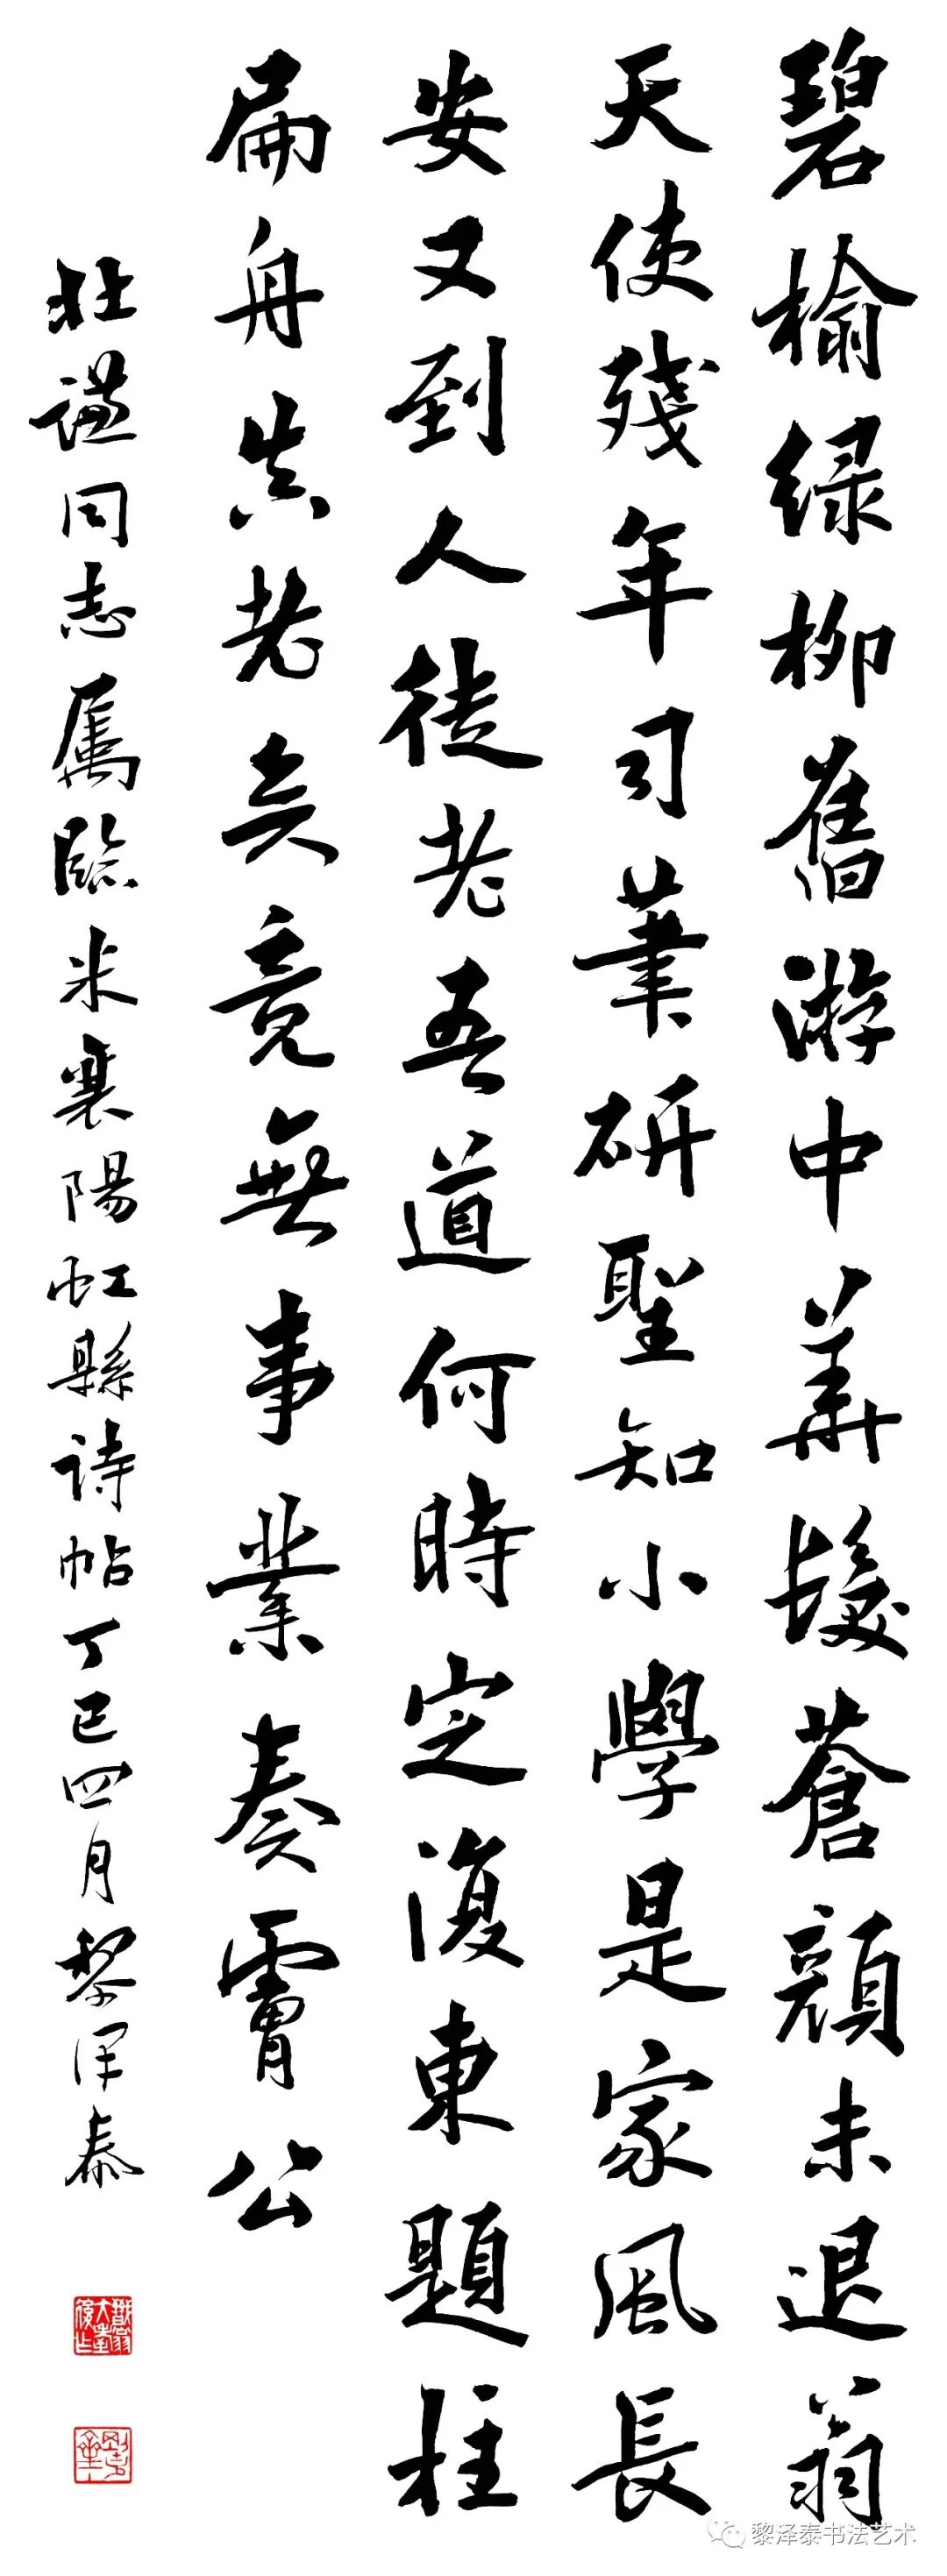 碧榆綠柳舊游中華髮蒼顏未退翁
天使殘年司筆研聖知小學是家風長
安又到人徒老吾道何時定復東題柱
扁舟真老矣竟無事業奏膚公
壯謙同志屬臨米襄陽虹縣詩帖丁巳四月黎澤泰
黎泽泰书法艺术